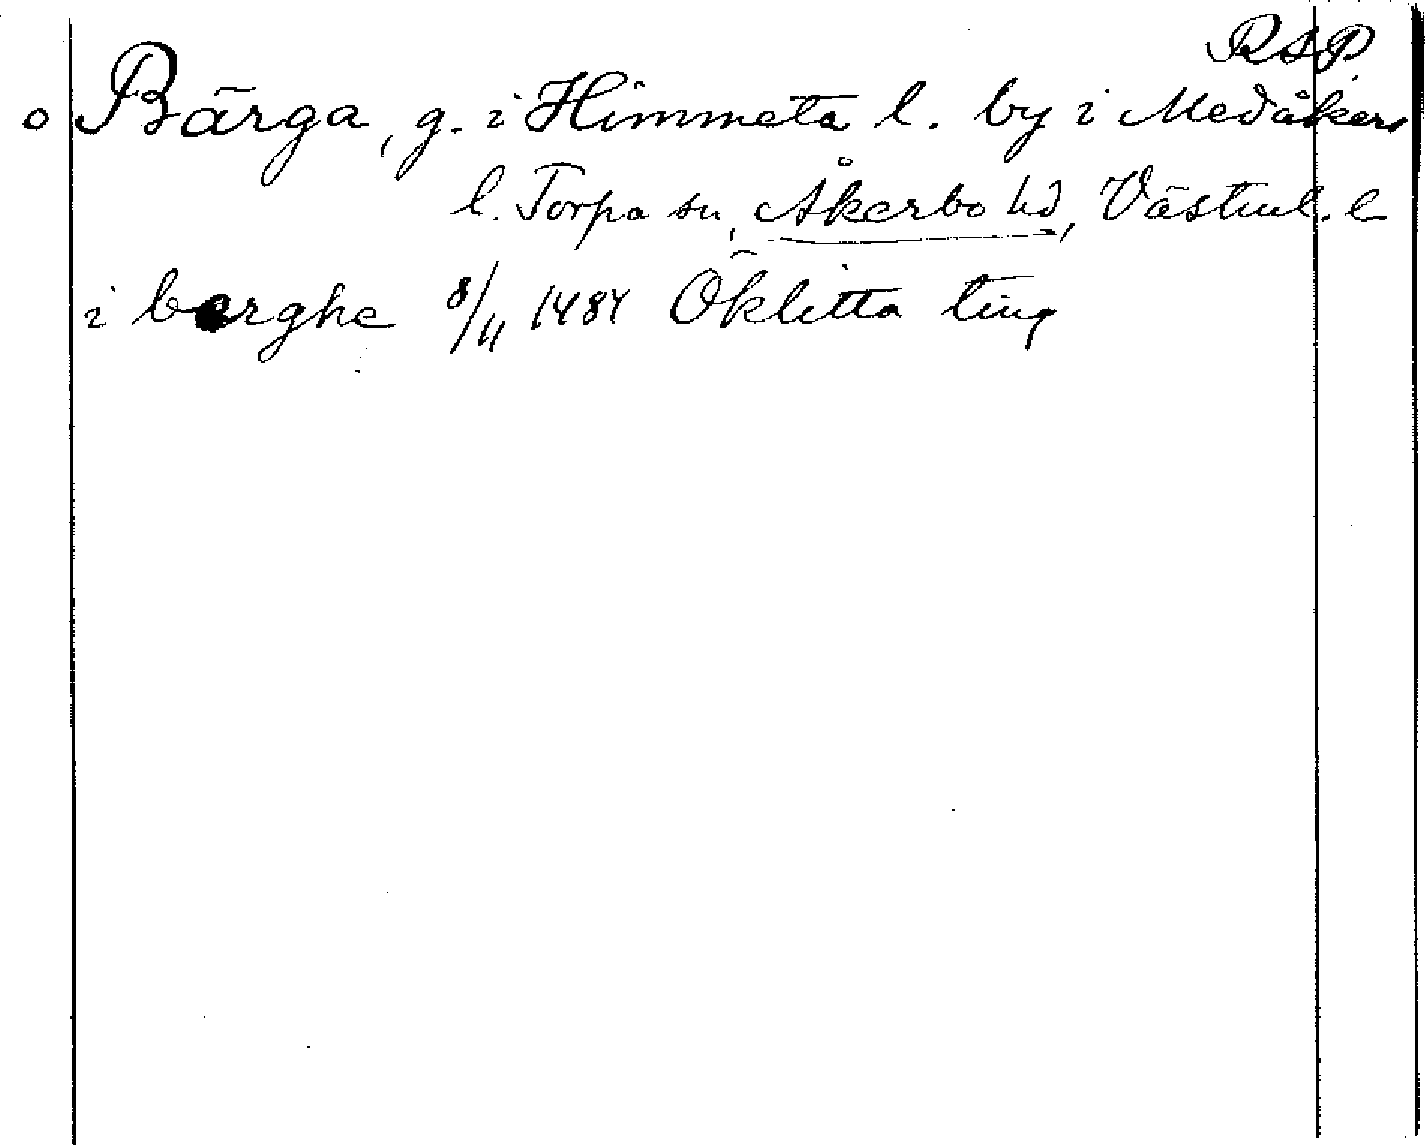 RSP
o Bärga, g. i Himmeta l. by i Medåkers
l. Torpa sn, Åkerbo hd, Västml. l
i berghe 8/11 1484 Öklitta ting